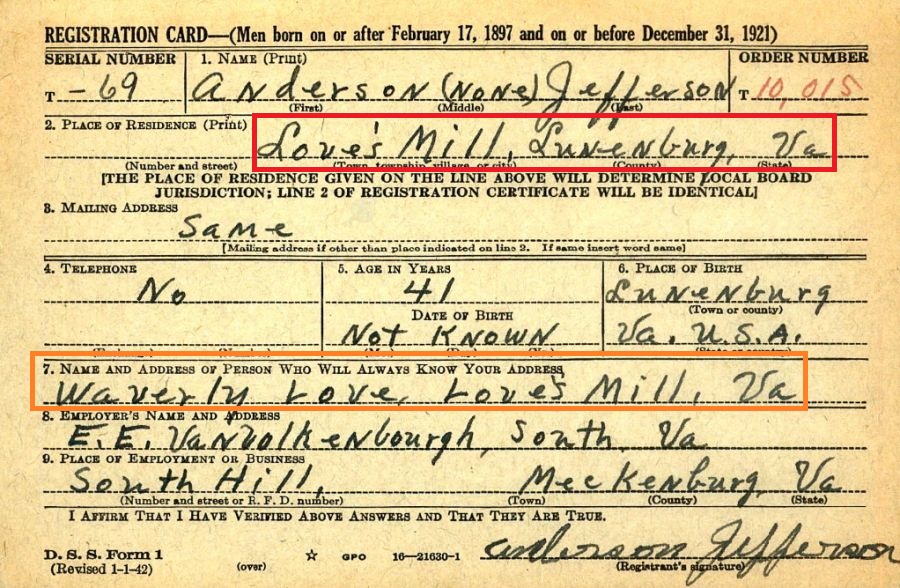 REGISTRATION CARD—(Men born on or after February 17, 1897 and on or before December 31, 1921)
SERIAL NUMBER 1. NAME (Print) ORDER NUMBER
T -69 Anderson (None) Jefferson T 10,015
(First) (Middle) (Last)
2. PLACE OF RESIDENCE (Print)
Love's Mill, Lunenburg, Va
(Number and street) (Town, township, village, or city) (County) (State)
[THE PLACE OF RESIDENCE GIVEN ON THE LINE ABOVE WILL DETERMINE LOCAL BOARD
JURISDICTION; LINE 2 OF REGISTRATION CERTIFICATE WILL BE IDENTICAL]
3. MAILING ADDRESS
Same
[Mailing address if other than place indicated on line 2. If same insert word same]
4. TELEPHONE 5. AGE IN YEARS 6. PLACE OF BIRTH
No 41 Lunenburg
DATE OF BIRTH (Town or county)
Not Known Va. U.S.A.
(State or country)
7. NAME AND ADDRESS OF PERSON WHO WILL ALWAYS KNOW YOUR ADDRESS
Waverly Love, Love's Mill, Va
8. EMPLOYER'S NAME AND ADDRESS
E. E. Vanvolkenbourgh, South, Va
9. PLACE OF EMPLOYMENT OR BUSINESS
South Hill, MecKenburg, Va
(Number and street or R. F. D. number) (Town) (County) (State)
I AFFIRM THAT I HAVE VERIFIED ABOVE ANSWERS AND THAT THEY ARE TRUE.
D. S. S. Form 1
(Revised 1-1-42) (over) GPO 16—21630-1 Anderson Jefferson
(Registrant's signature)